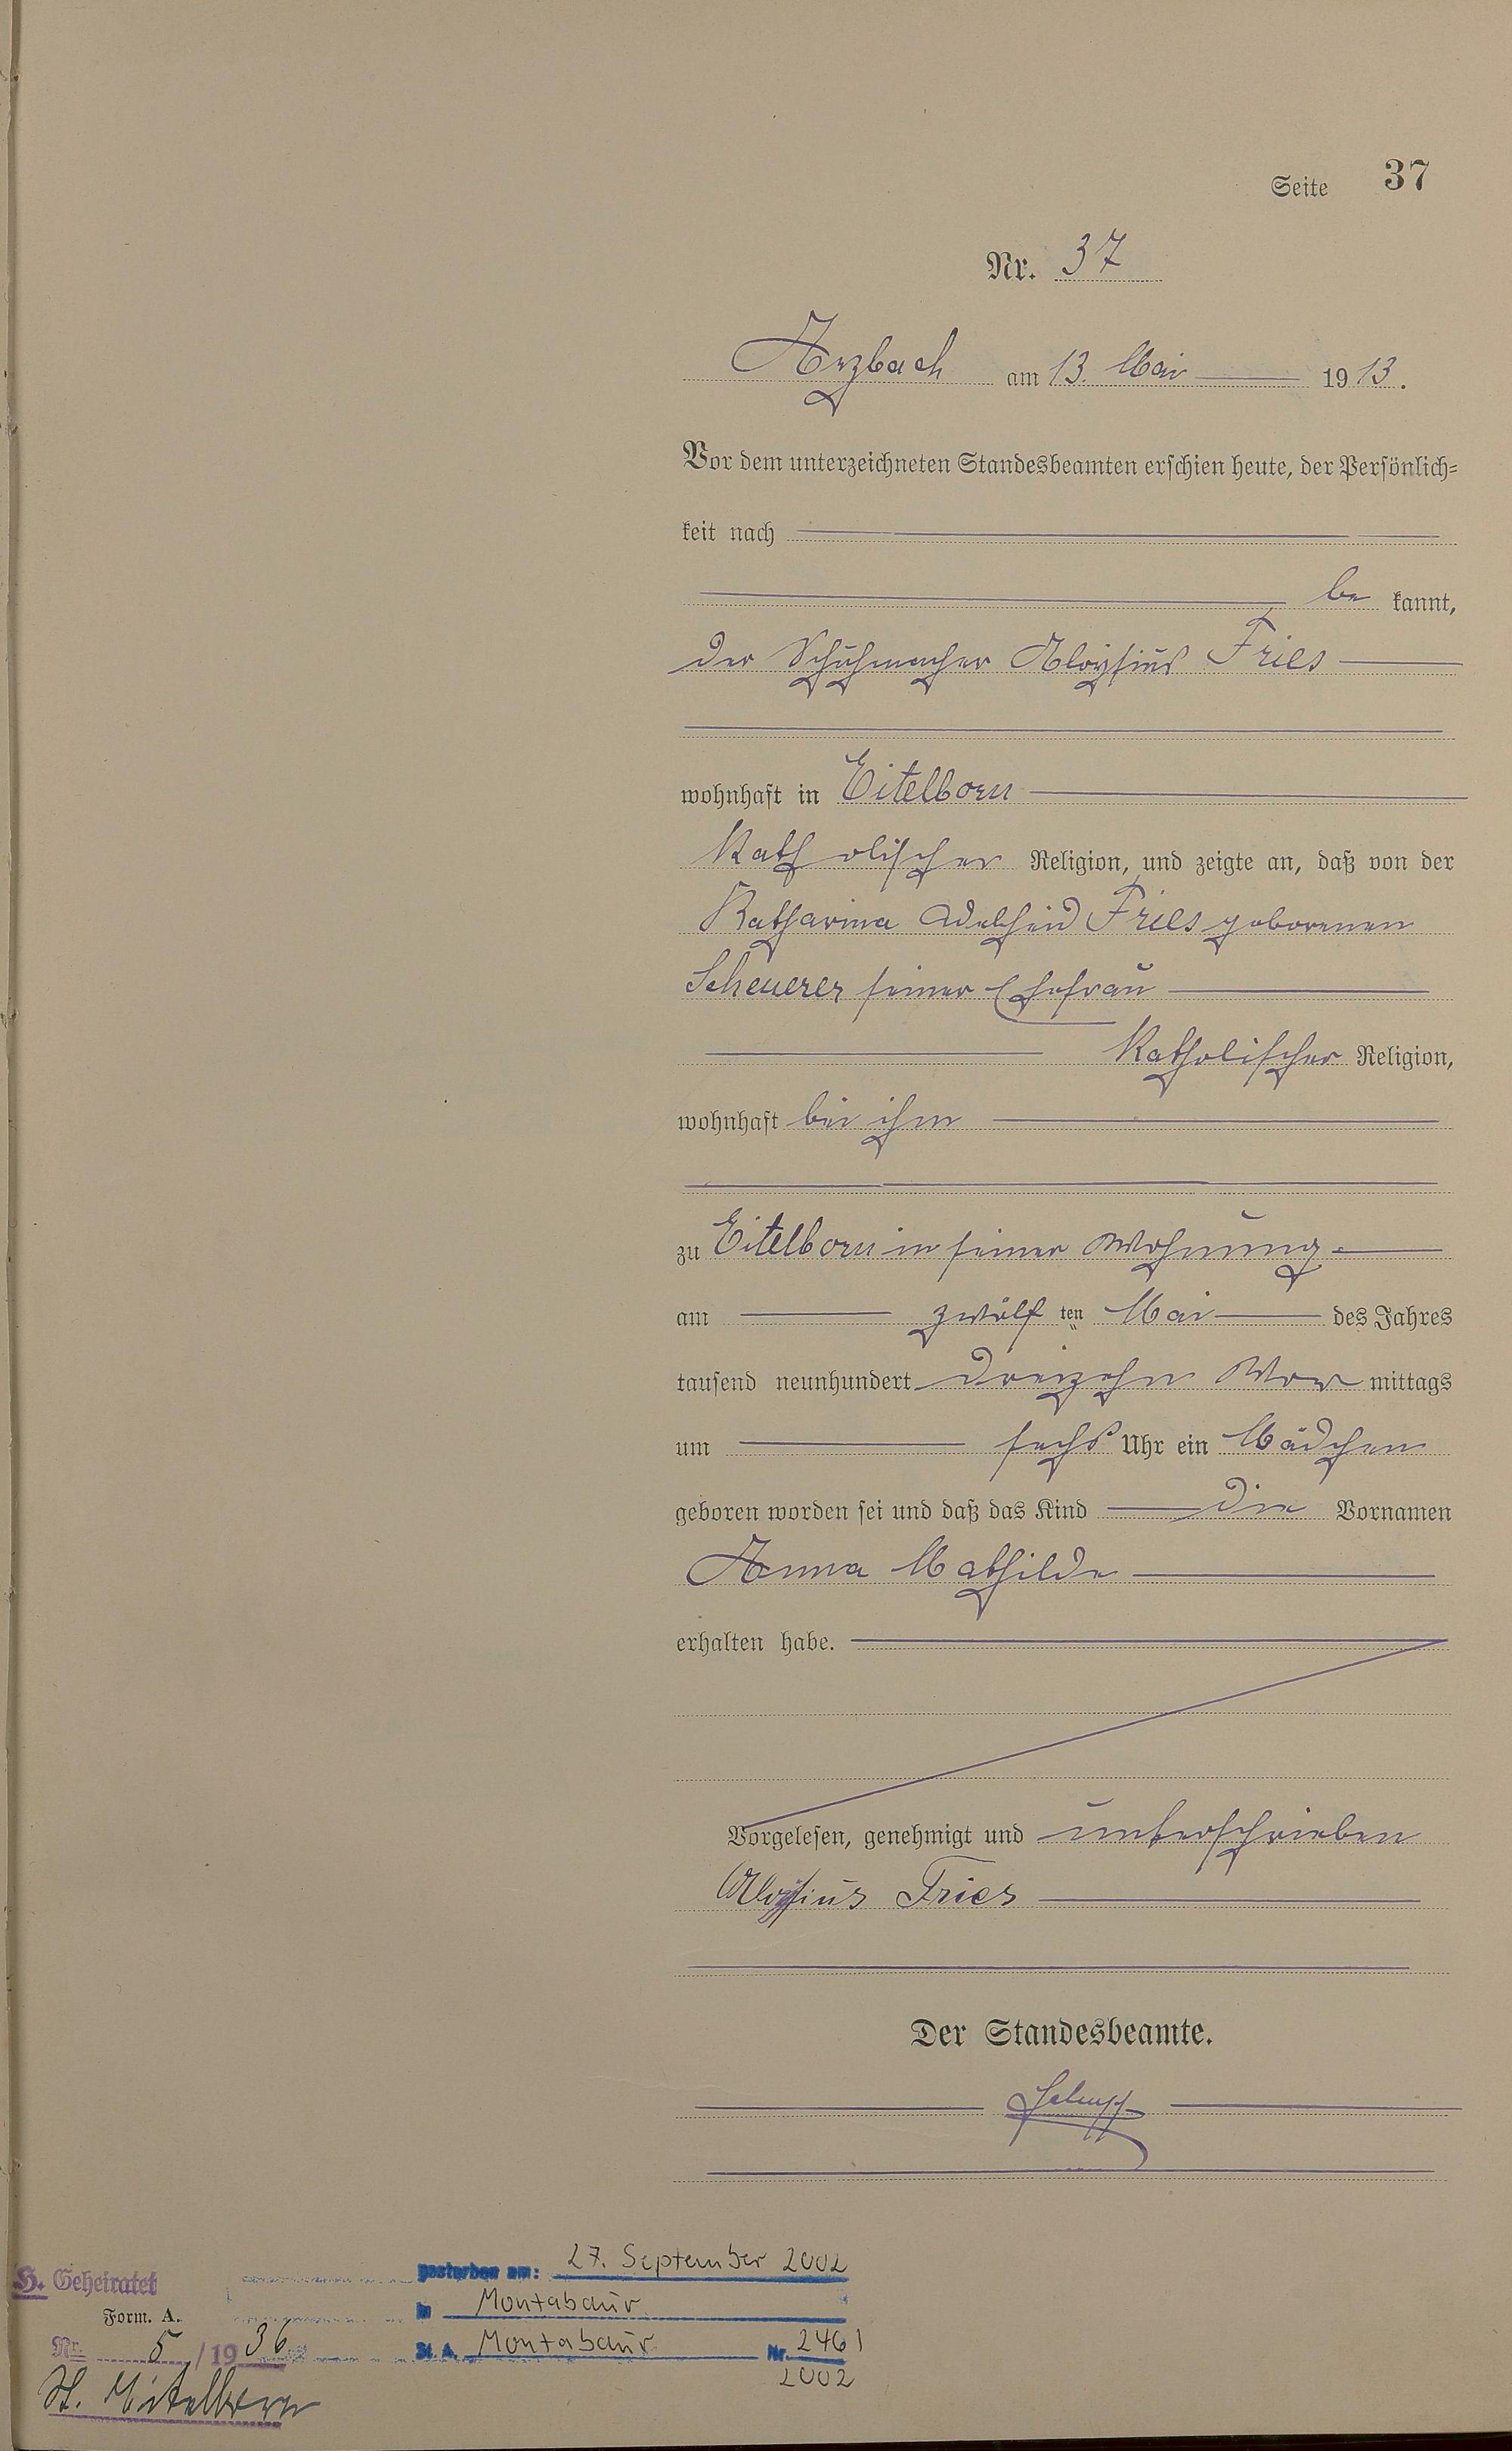 Seite 37
Nr. 37
Arzbach am 13. Mai 1913.
Vor dem unterzeichneten Standesbeamten erschien heute, der Persönlich=
keit nach
be kannt,
der Schuhmacher Aloysius Fries
wohnhaft in Eitelborn
Katholischer Religion, und zeigte an, daß von der
Katharina Adelheid Fries geborenen
Scheuerer seiner Ehefrau
Katholischer Religion,
wohnhaft bei ihm
zu Eitelborn in seiner Wohnung
am zwölf ten Mai des Jahres
tausend neunhundert dreizehn Vor mittags
um sechs Uhr ein Mädchen
geboren worden sei und daß das Kind die Vornamen
Anna Mathilde
erhalten habe.
Vorgelesen, genehmigt und unterschrieben
Aloysius Fries
Der Standesbeamte.
H. Geheiratet
Form. A.
Nr. 5 / 1936
St. Eitelborn
gestorben am: 27. September 2002
in Montabaur
St. A. Montabaur Nr. 2461
2002